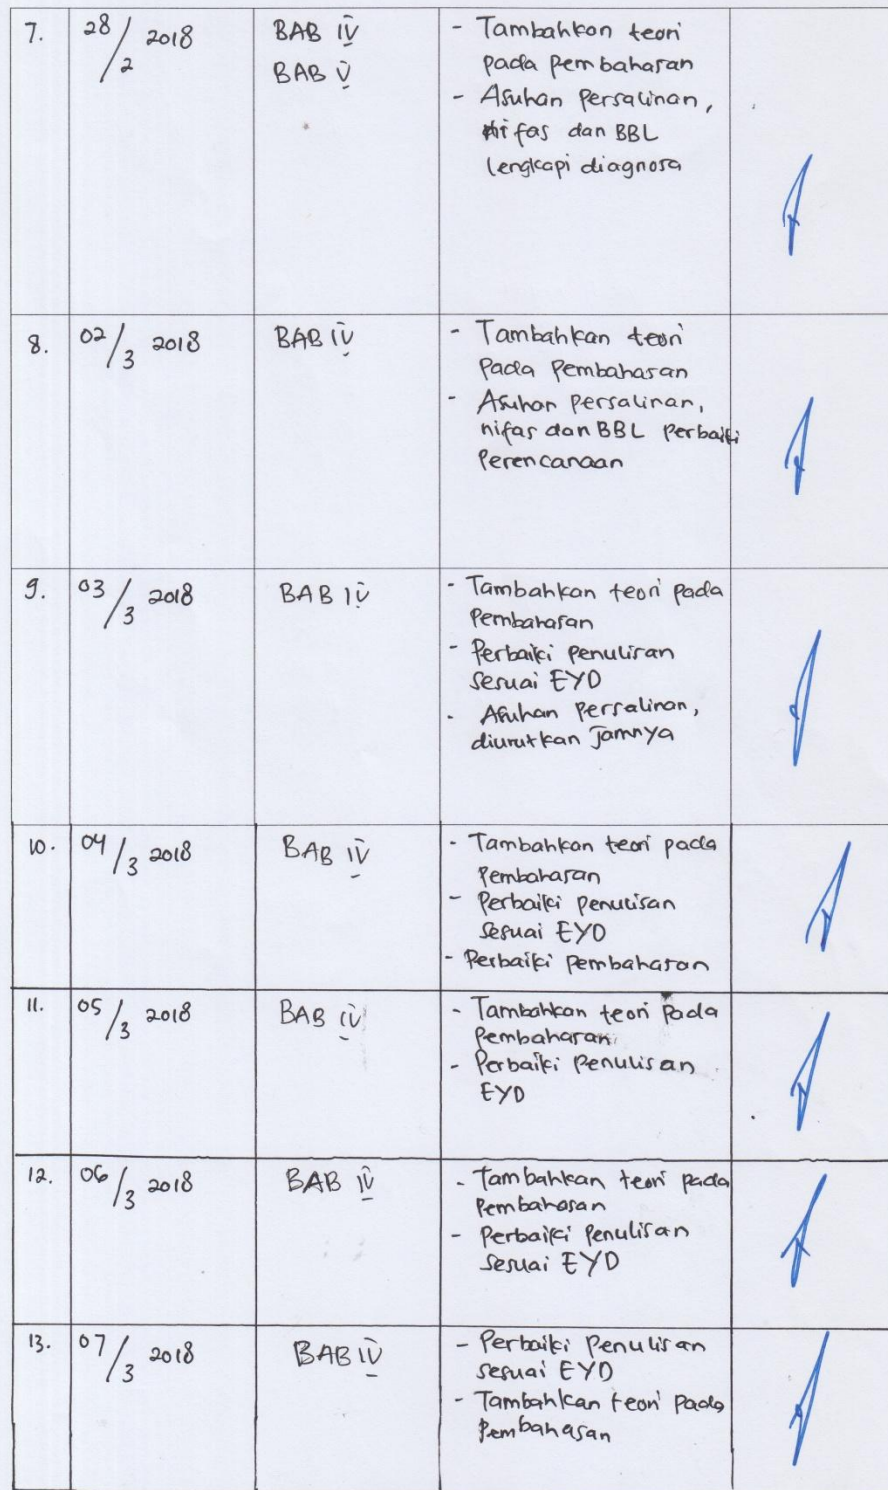 7. 28/2 2018 BAB IV - Tambahkan teori
BAB V pada pembahasan
- Asuhan Persalinan,
nifas dan BBL
lengkapi diagnosa
8. 02/3 2018 BAB IV - Tambahkan teori
Pada Pembahasan
- Asuhan persalinan,
nifas dan BBL Perbaiki
Perencanaan
9. 03/3 2018 BAB IV - Tambahkan teori pada
Pembahasan
- Perbaiki penulisan
sesuai EYD
- Asuhan persalinan,
diurutkan Jamnya
10. 04/3 2018 BAB IV - Tambahkan teori pada
Pembahasan
- Perbaiki penulisan
sesuai EYD
- Perbaiki pembahasan
11. 05/3 2018 BAB IV - Tambahkan teori Pada
Pembahasan
- Perbaiki Penulisan
EYD
12. 06/3 2018 BAB IV - Tambahkan teori pada
Pembahasan
- Perbaiki Penulisan
sesuai EYD
13. 07/3 2018 BAB IV - Perbaiki Penulisan
sesuai EYD
- Tambahkan teori Pada
Pembahasan